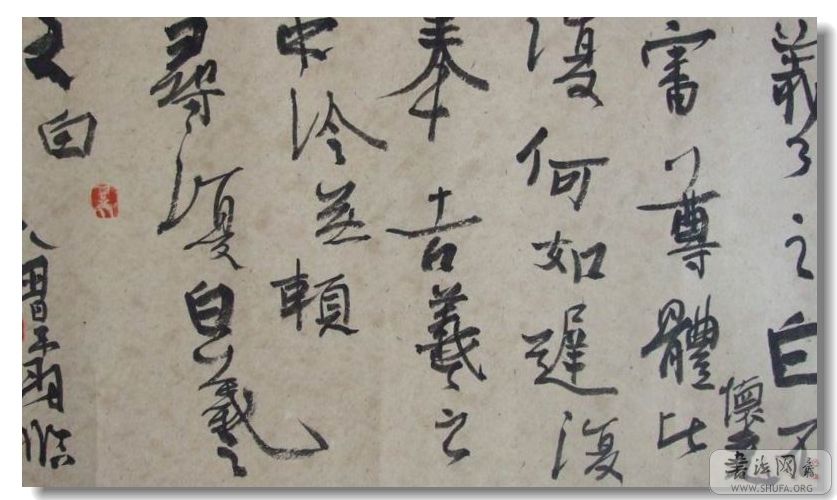 羲之白不
審尊體比
復何如遲復
奉告羲之
中冷無賴
尋復白羲
之白
臨
懷
書法网
WWW.SHUFA.ORG